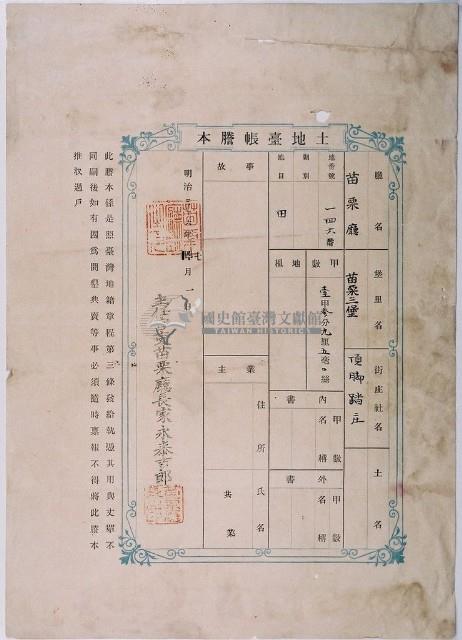 土地臺帳謄本
廳名 苗栗廳
堡里名 苗栗三堡
街庄社名 頂脚踏庄
土名
地番號 一四六番
則別
地目 田
甲數 壹甲參分九厘五毫〇絲
地租
內書 名稱 甲數
外書 名稱 甲數
事故
業主 住所 氏名
共業
明治三 年 月一日
苗栗廳長家永泰吉郎
國史館臺灣文獻館
TAIWAN HISTORICA
此謄本係是照臺灣地籍章程第三條發給執憑其用與丈單不
同嗣後如有因爲開墾典賣等事必須隨時禀報不得將此謄本
推收過戶